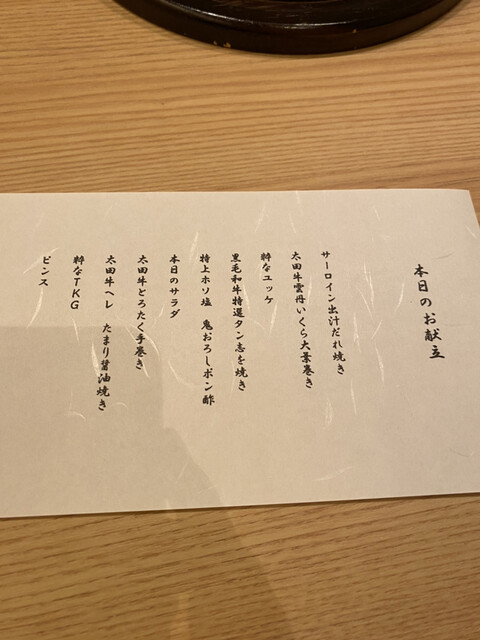 本日のお献立
サーロイン出汁だれ焼き
太田牛雲丹いくら大葉巻き
粋なユッケ
黒毛和牛特選タン志を焼き
特上ホソ塩 鬼おろしポン酢
本日のサラダ
太田牛とろたく手巻き
太田牛ヘレ たまり醤油焼き
粋なTKG
ビンス